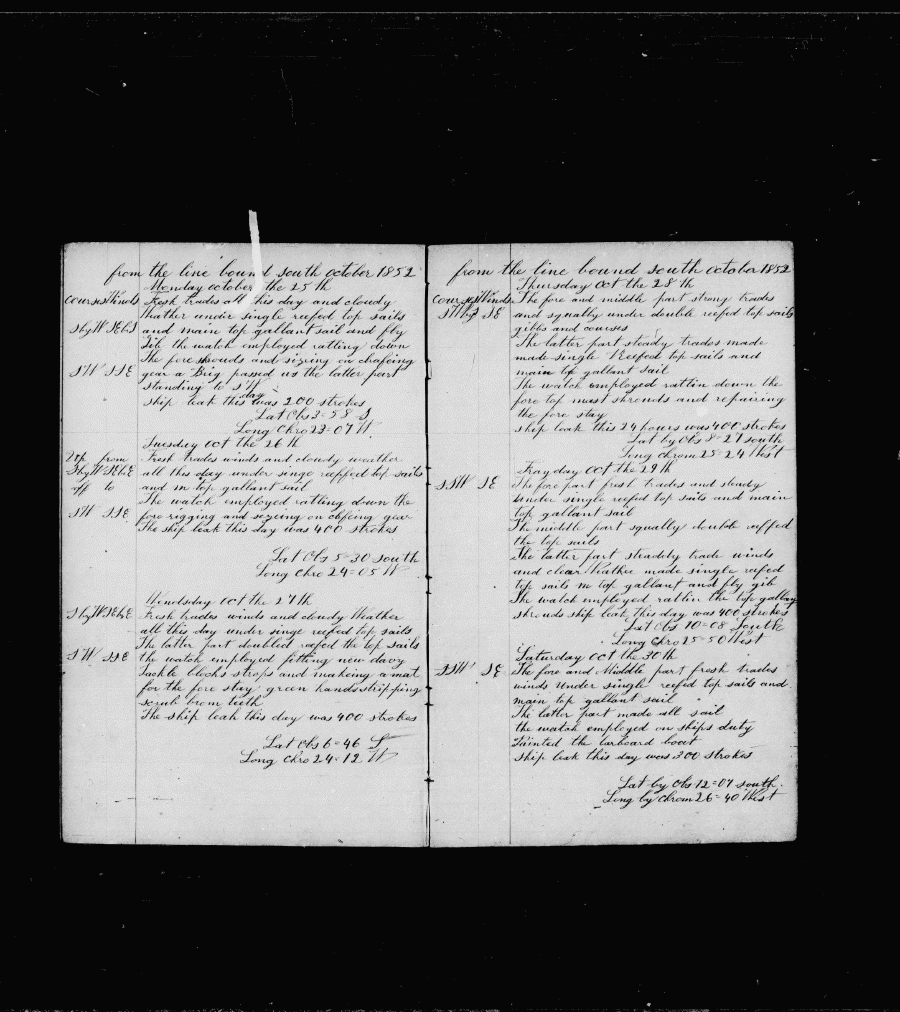 from the line bound south october 1852
Monday october the 25 th
Courses Winds Fresh trades all this day and cloudy
Wather under single reefed top sails
S by W SE b S and main top gallant sail and fly
Jib the watch employed ratling down
The fore shrouds and sizeing on chafeing
SW SSE gear a Brig passed us the latter part
standing to SW
ship leak this day was 200 strokes
Lat Obs 3=58 S
Long Chro 23=07 W
Tuesday oct the 26 th
from Fresh trades winds and cloudy weather
S by W SE b E all this day under singe reeffed top sails
off to and m top gallant sail
The watch employed ratling down the
SW SSE fore rigging and sezeing on chfeing gear
The ship leak this day was 400 strokes
Lat Obs 5=30 south
Long Chro 24=05 W
Wendsday oct the 27 th
S by W SE by E Fresh trades winds and cloudy Weather
all this day under singe reefed top sails
The latter part doubled reefed the top sails
SW SSE the watch employed fitting new davy
Tackle blocks strops and makeing a mat
for the fore stay green hands stripping
scrub brom teeth
The ship leak this day was 400 strokes
Lat Obs 6=46 S
Long Chro 24=12 W
from the line bound south october 1852
Thursday Oct the 28 th
Courses Winds The fore and middle part strong trades
SW by S SE and squally under double reefed top sails
gibbs and courses
The latter part steady trades made
made single Reefed top sails and
main top gallant sail
The watch employed rattlin down the
fore top mast shrouds and repairing
the fore stay
ship leak this 24 hours was 400 strokes
Lat by Obs 8=27 south
Long chrom 25=24 West
Fray day Oct the 29 th
SSW SE The fore part fresh trades and steady
under single reefed top sails and main
top gallant sail
The middle part squally double reffed
the top sails
The latter part steadely trade winds
and clear Weather made single reefed
top sails m top gallant and fly gib
The watch employed ratlin the top gallan
shrouds ship leak this day was 400 strokes
Lat Obs 10=08 South
Long Chro 25=50 West
Saturday Oct the 30 th
SSW SE The fore and Middle part fresh trades
winds under single reefed top sails and
main top gallant sail
The latter part made all sail
the watch employed on ships duty
Painted the larboard boat
ship leak this day was 300 strokes
Lat by Obs 12=07 south
Long by Chrom 26=40 West